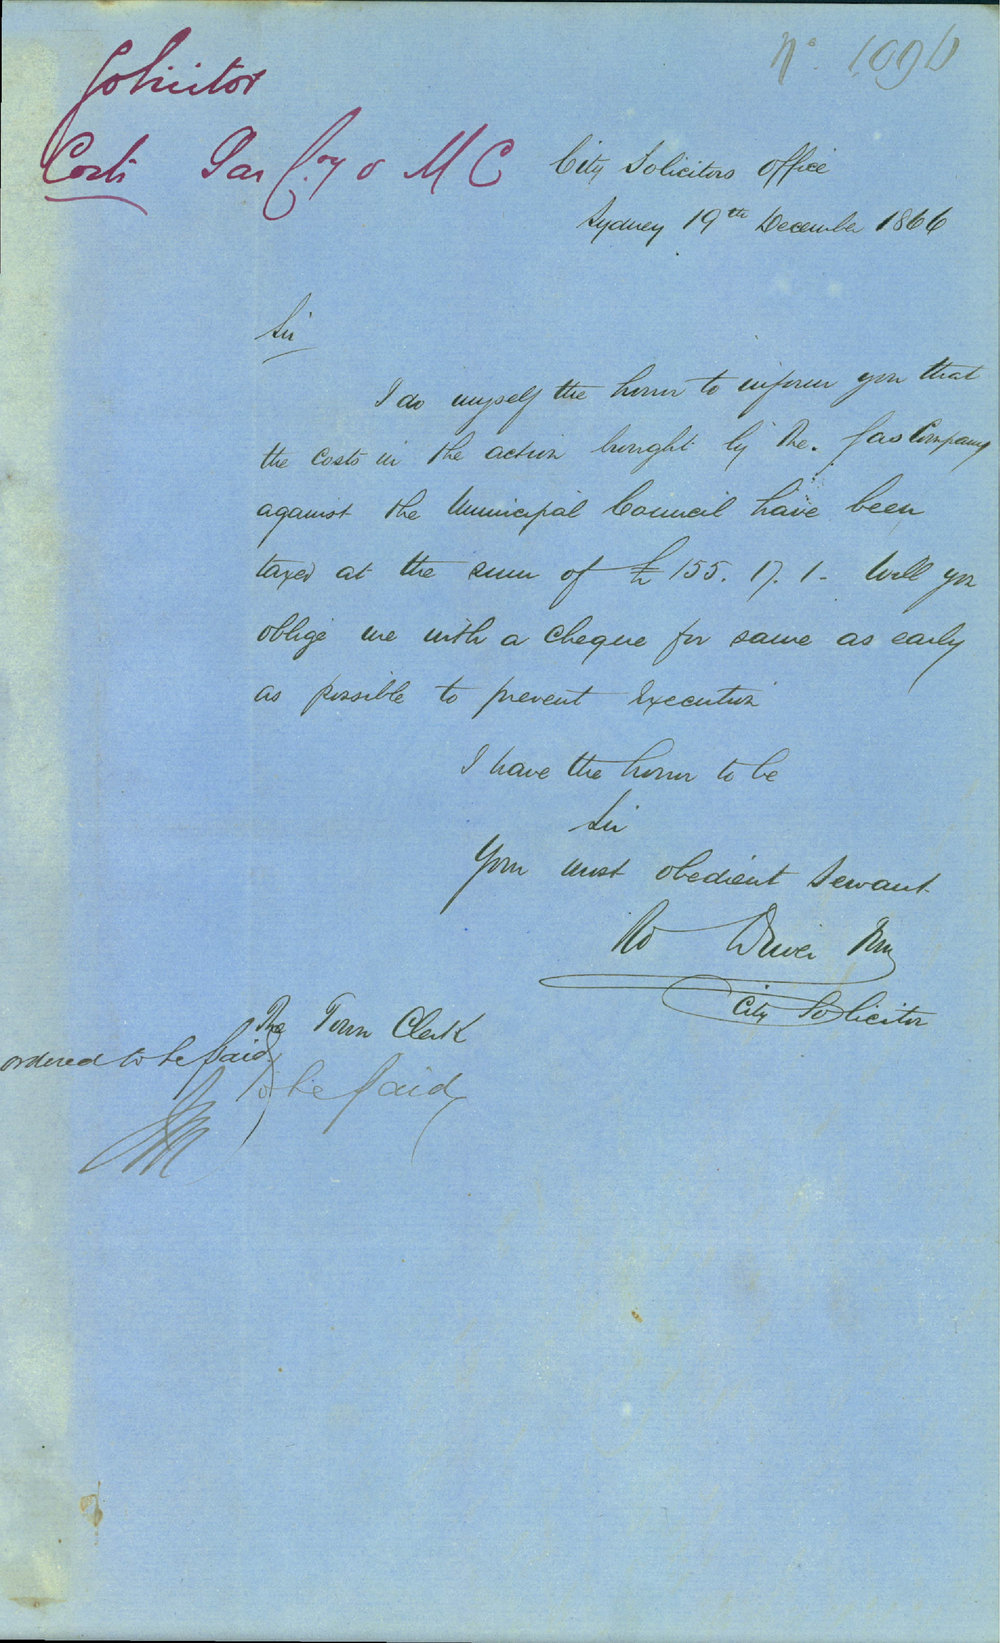 Solicitor
No. 1090
Costs Gas Coy v M C
City Solicitors Office
Sydney 19th December 1866
Sir
I do myself the honor to inform you that
the costs in the action brought by The Gas Company
against the Municipal Council have been
taxed at the sum of £155.17.1 - Will you
oblige me with a cheque for same as early
as possible to prevent Execution
I have the honor to be
Sir
Your most obedient Servant
Rd Driver Junr
City Solicitor
The Town Clerk
ordered to be paid
To be paid